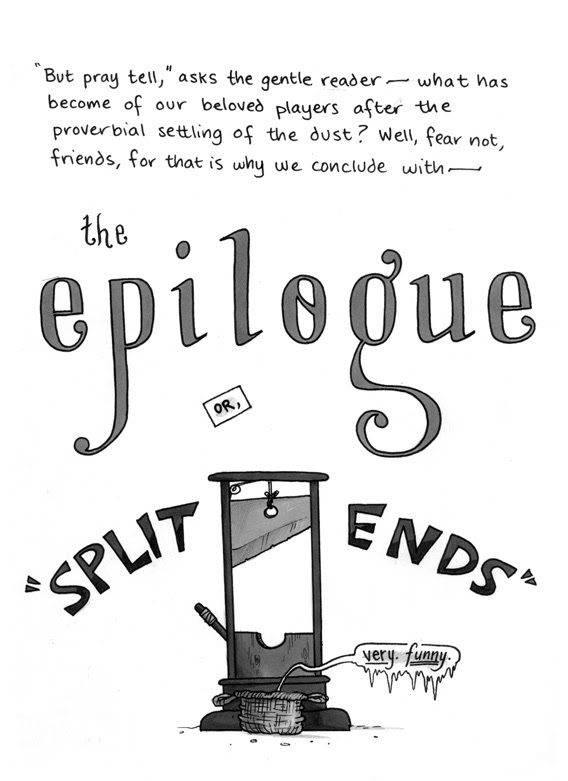 "But pray tell," asks the gentle reader — what has
become of our beloved players after the
proverbial settling of the dust? Well, fear not,
friends, for that is why we conclude with —
the
epilogue
OR,
"SPLIT ENDS"
very. funny.